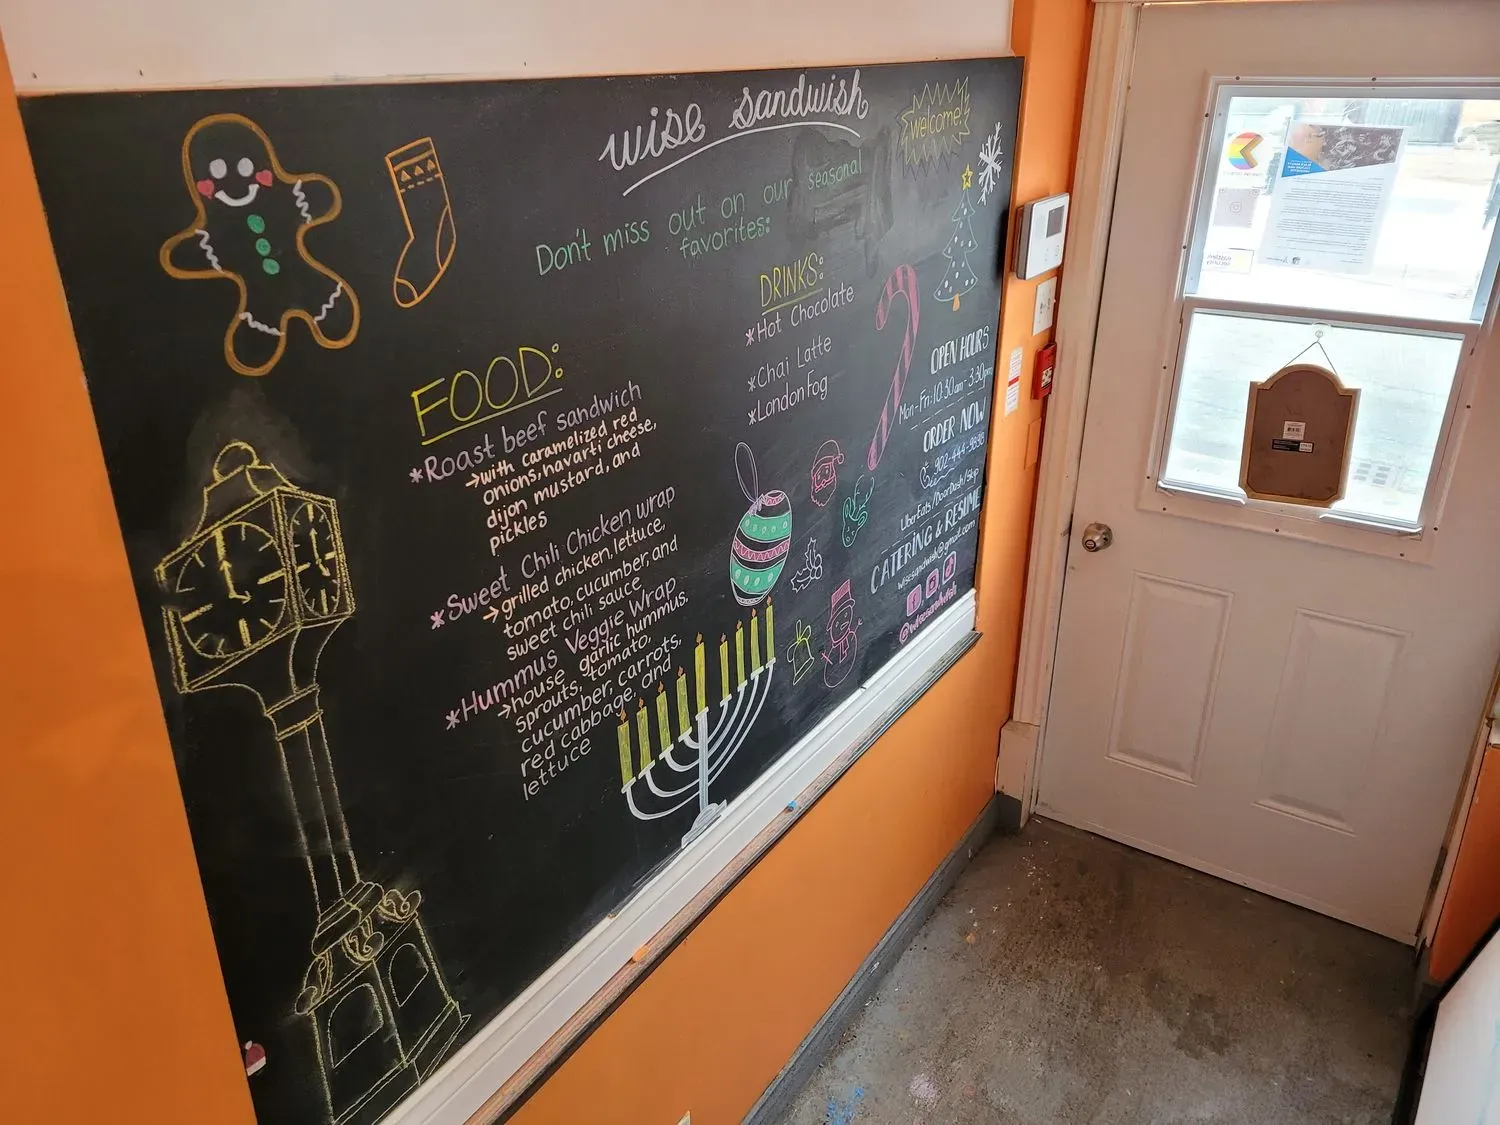 wise sandwish
welcome!
Don't miss out on our seasonal
favorites:
FOOD:
*Roast beef sandwich
→with caramelized red
onions, navarti cheese,
dijon mustard, and
pickles
*Sweet Chili Chicken wrap
→grilled chicken, lettuce,
tomato, cucumber, and
sweet chili sauce
*Hummus Veggie Wrap
→house garlic hummus,
sprouts, tomato,
cucumber, carrots,
red cabbage, and
lettuce
DRINKS:
*Hot Chocolate
*Chai Latte
*London Fog
OPEN HOURS
Mon-Fri: 10:30am-3:30pm
ORDER NOW
902-444-9898
UberEats/DoorDash/Skip
CATERING & RESUME
wisesandwish@gmail.com
@wisesandwish